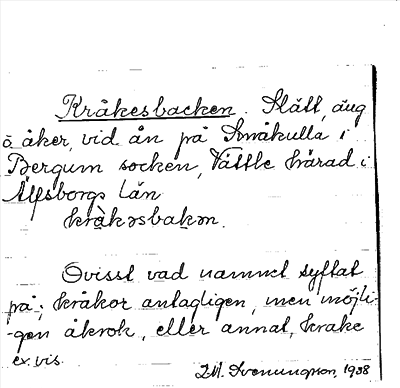 Kråkesbacken. Slätt, äng
o. åker, vid ån på Småkulla i
Bergum socken, Vättle härad i
Älfsborgs län
kråkəsbakən.
Ovisst vad namnet syftat
på; kråkor antagligen, men möjli-
-gen åkrok, eller annat, krake
ex.vis.
Svenungson, 1938